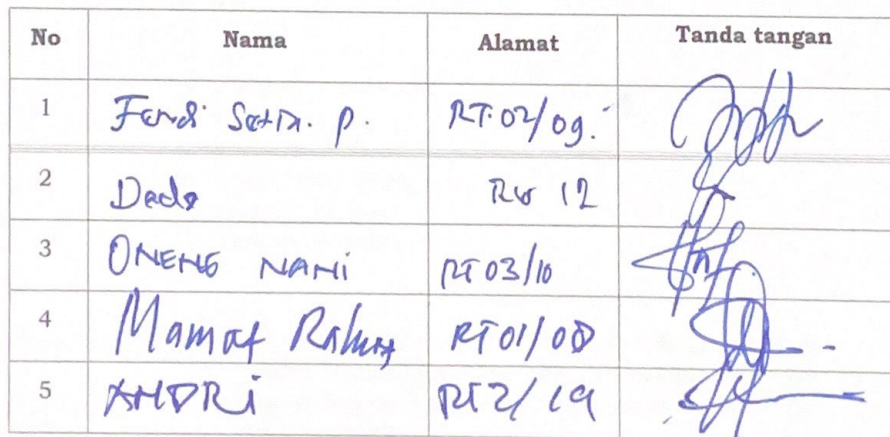 No Nama Alamat Tanda tangan
1 Fendi Satria. P. RT.02/09.
2 Dede RW 12
3 ONENG NANI RT 03/10
4 Mamat Rahmat RT 01/08
5 ANDRI RT 2/19